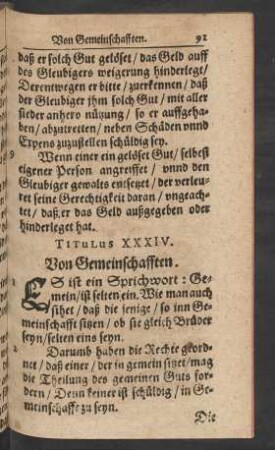 Von Gemeinschafften. 91
daß er solch Gut gelöset / das Geld auff
des Gleubigers weigerung hinderlegt /
Derentwegen er bitte / zuerkennen / daß
der Gleubiger ihm solch Gut / mit aller
sieder anhero nützung / so er auffgeha-
ben / abzutretten / neben Schäden vnnd
Expens zuzustellen schüldig sey.
3 Wenn einer ein gelöset Gut / selbst
eigener Person angreiffet / vnnd den
Gleubiger gewalts entsetzet / der verleu-
ret seine Gerechtigkeit daran / vngeach-
tet / daß er das Geld außgegeben oder
hinderleget hat.
TITULUS XXXIV.
Von Gemeinschafften.
1 ES ist ein Sprichwort : Ge-
mein / ist selten ein. Wie man auch
sihet / daß die jenige / so inn Ge-
meinschafft sitzen / ob sie gleich Brüder
seyn / selten eins seyn.
2 Darumb haben die Rechte geord-
net / daß einer / der in gemein sitzet / mag
die Theilung des gemeinen Guts for-
dern / Denn keiner ist schüldig / in Ge-
meinschafft zu seyn.
Die